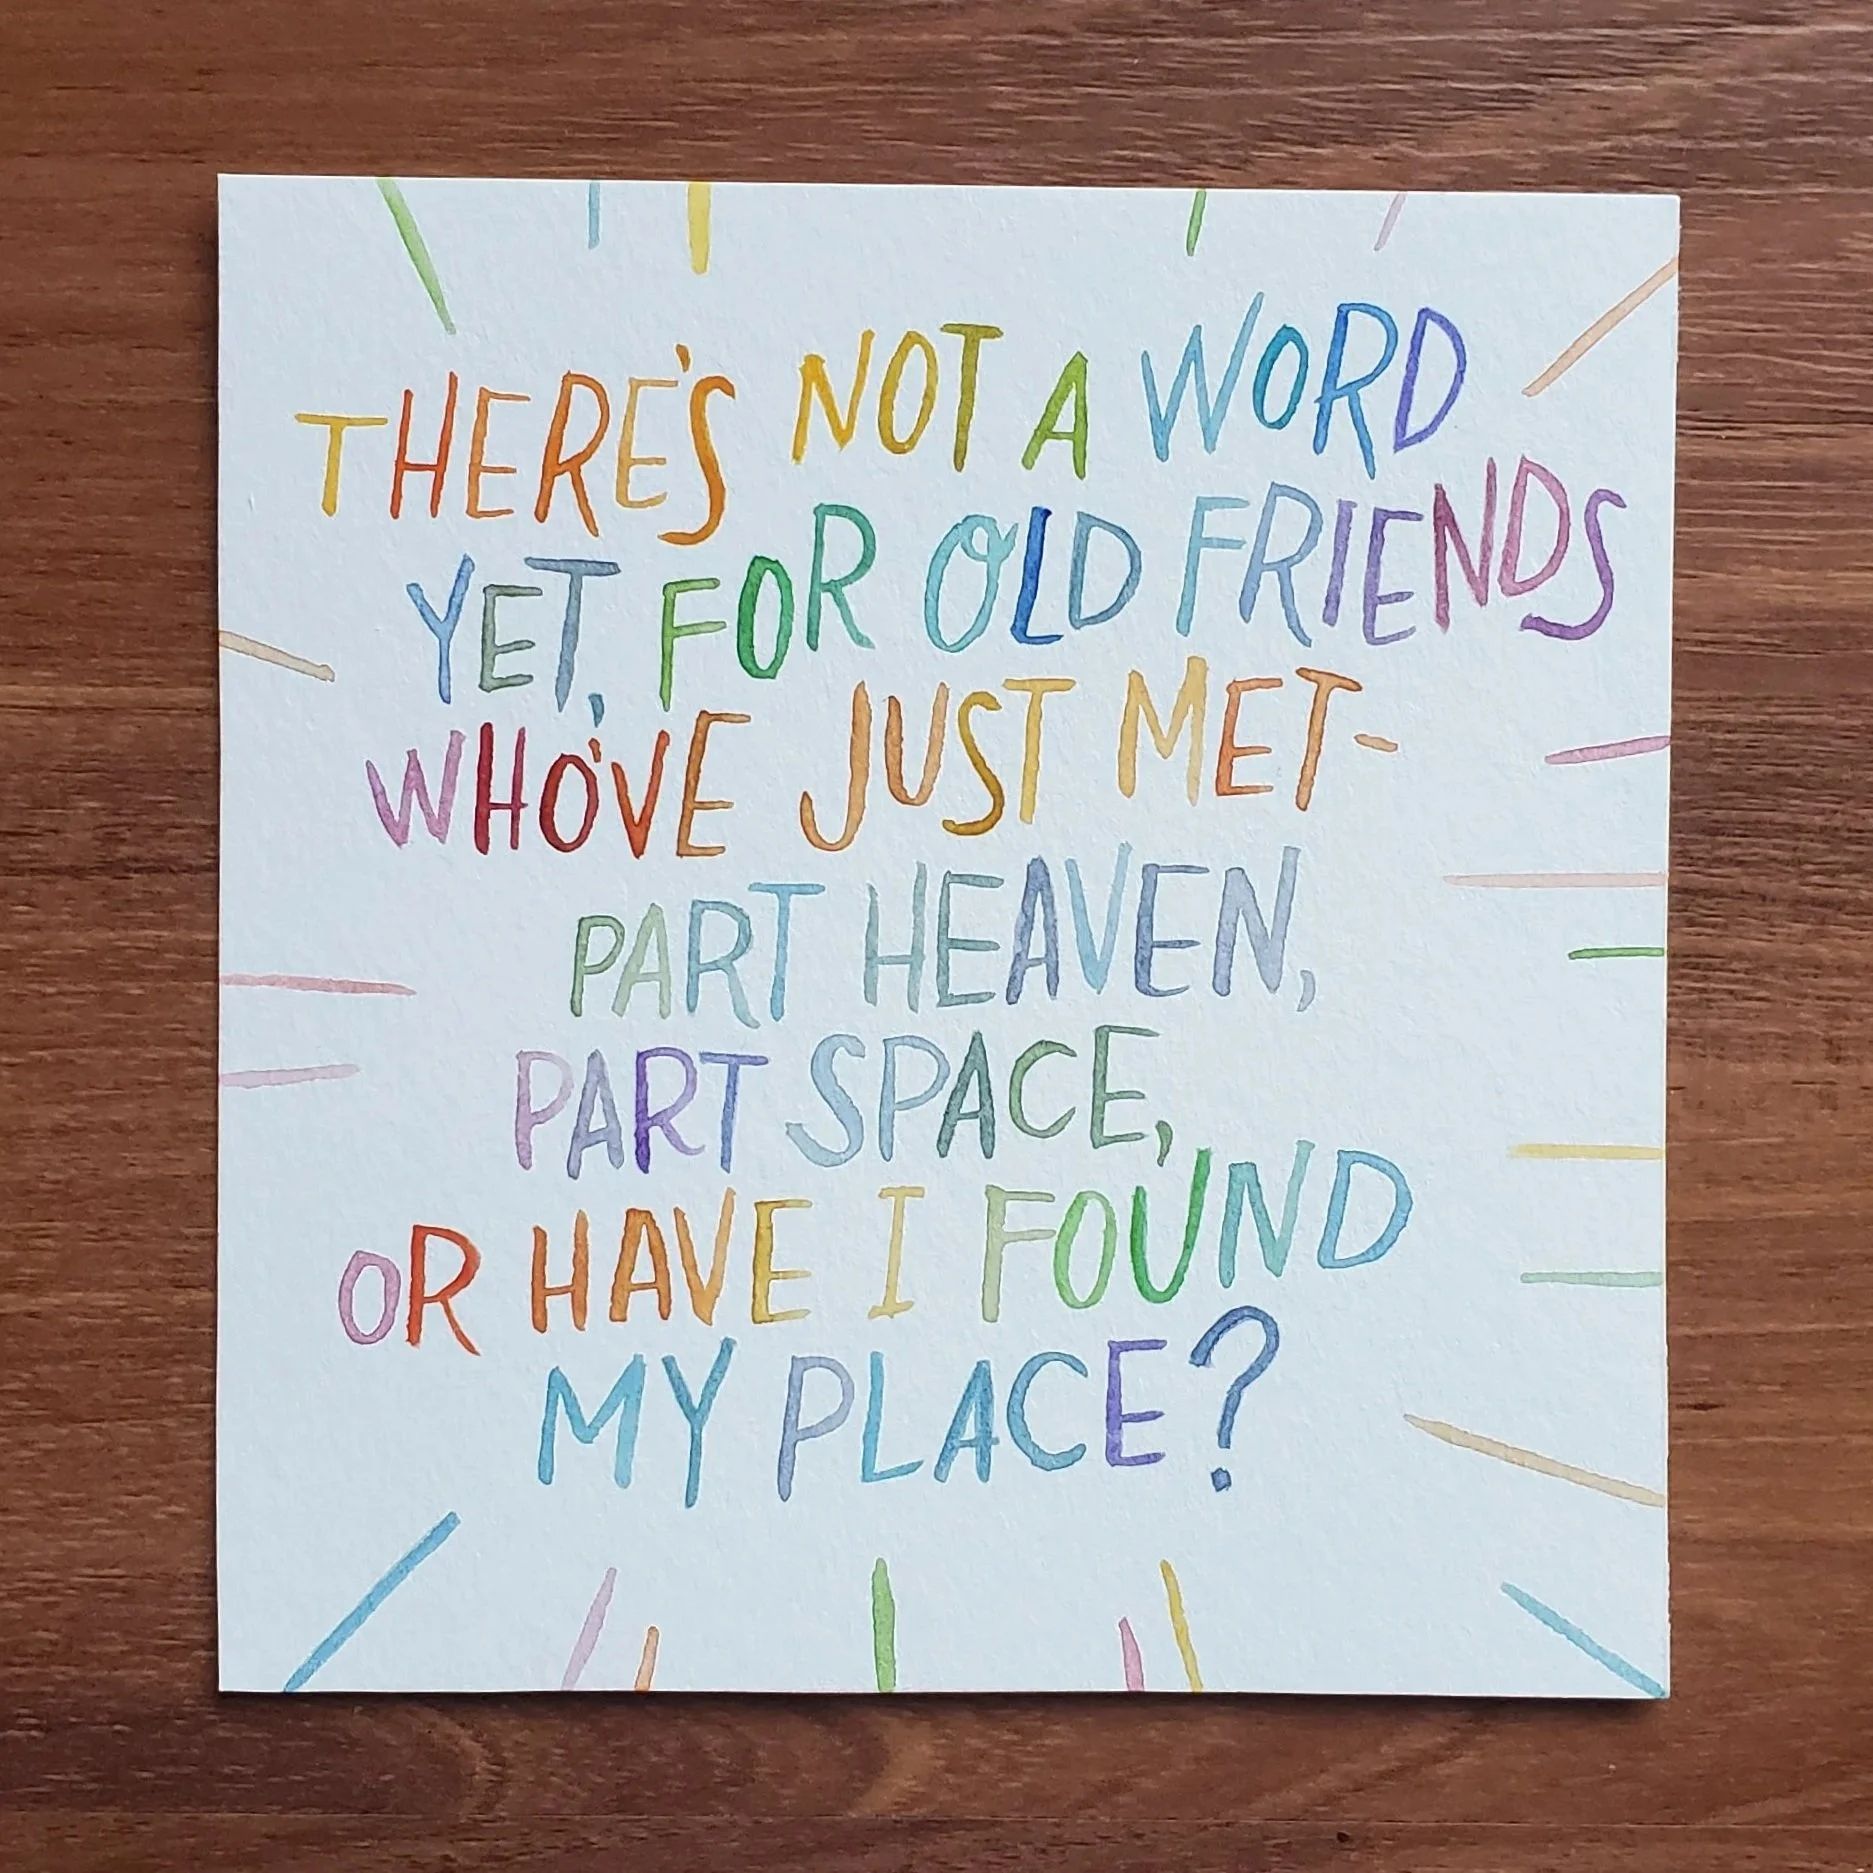 THERE'S NOT A WORD
YET, FOR OLD FRIENDS
WHO'VE JUST MET-
PART HEAVEN,
PART SPACE,
OR HAVE I FOUND
MY PLACE?